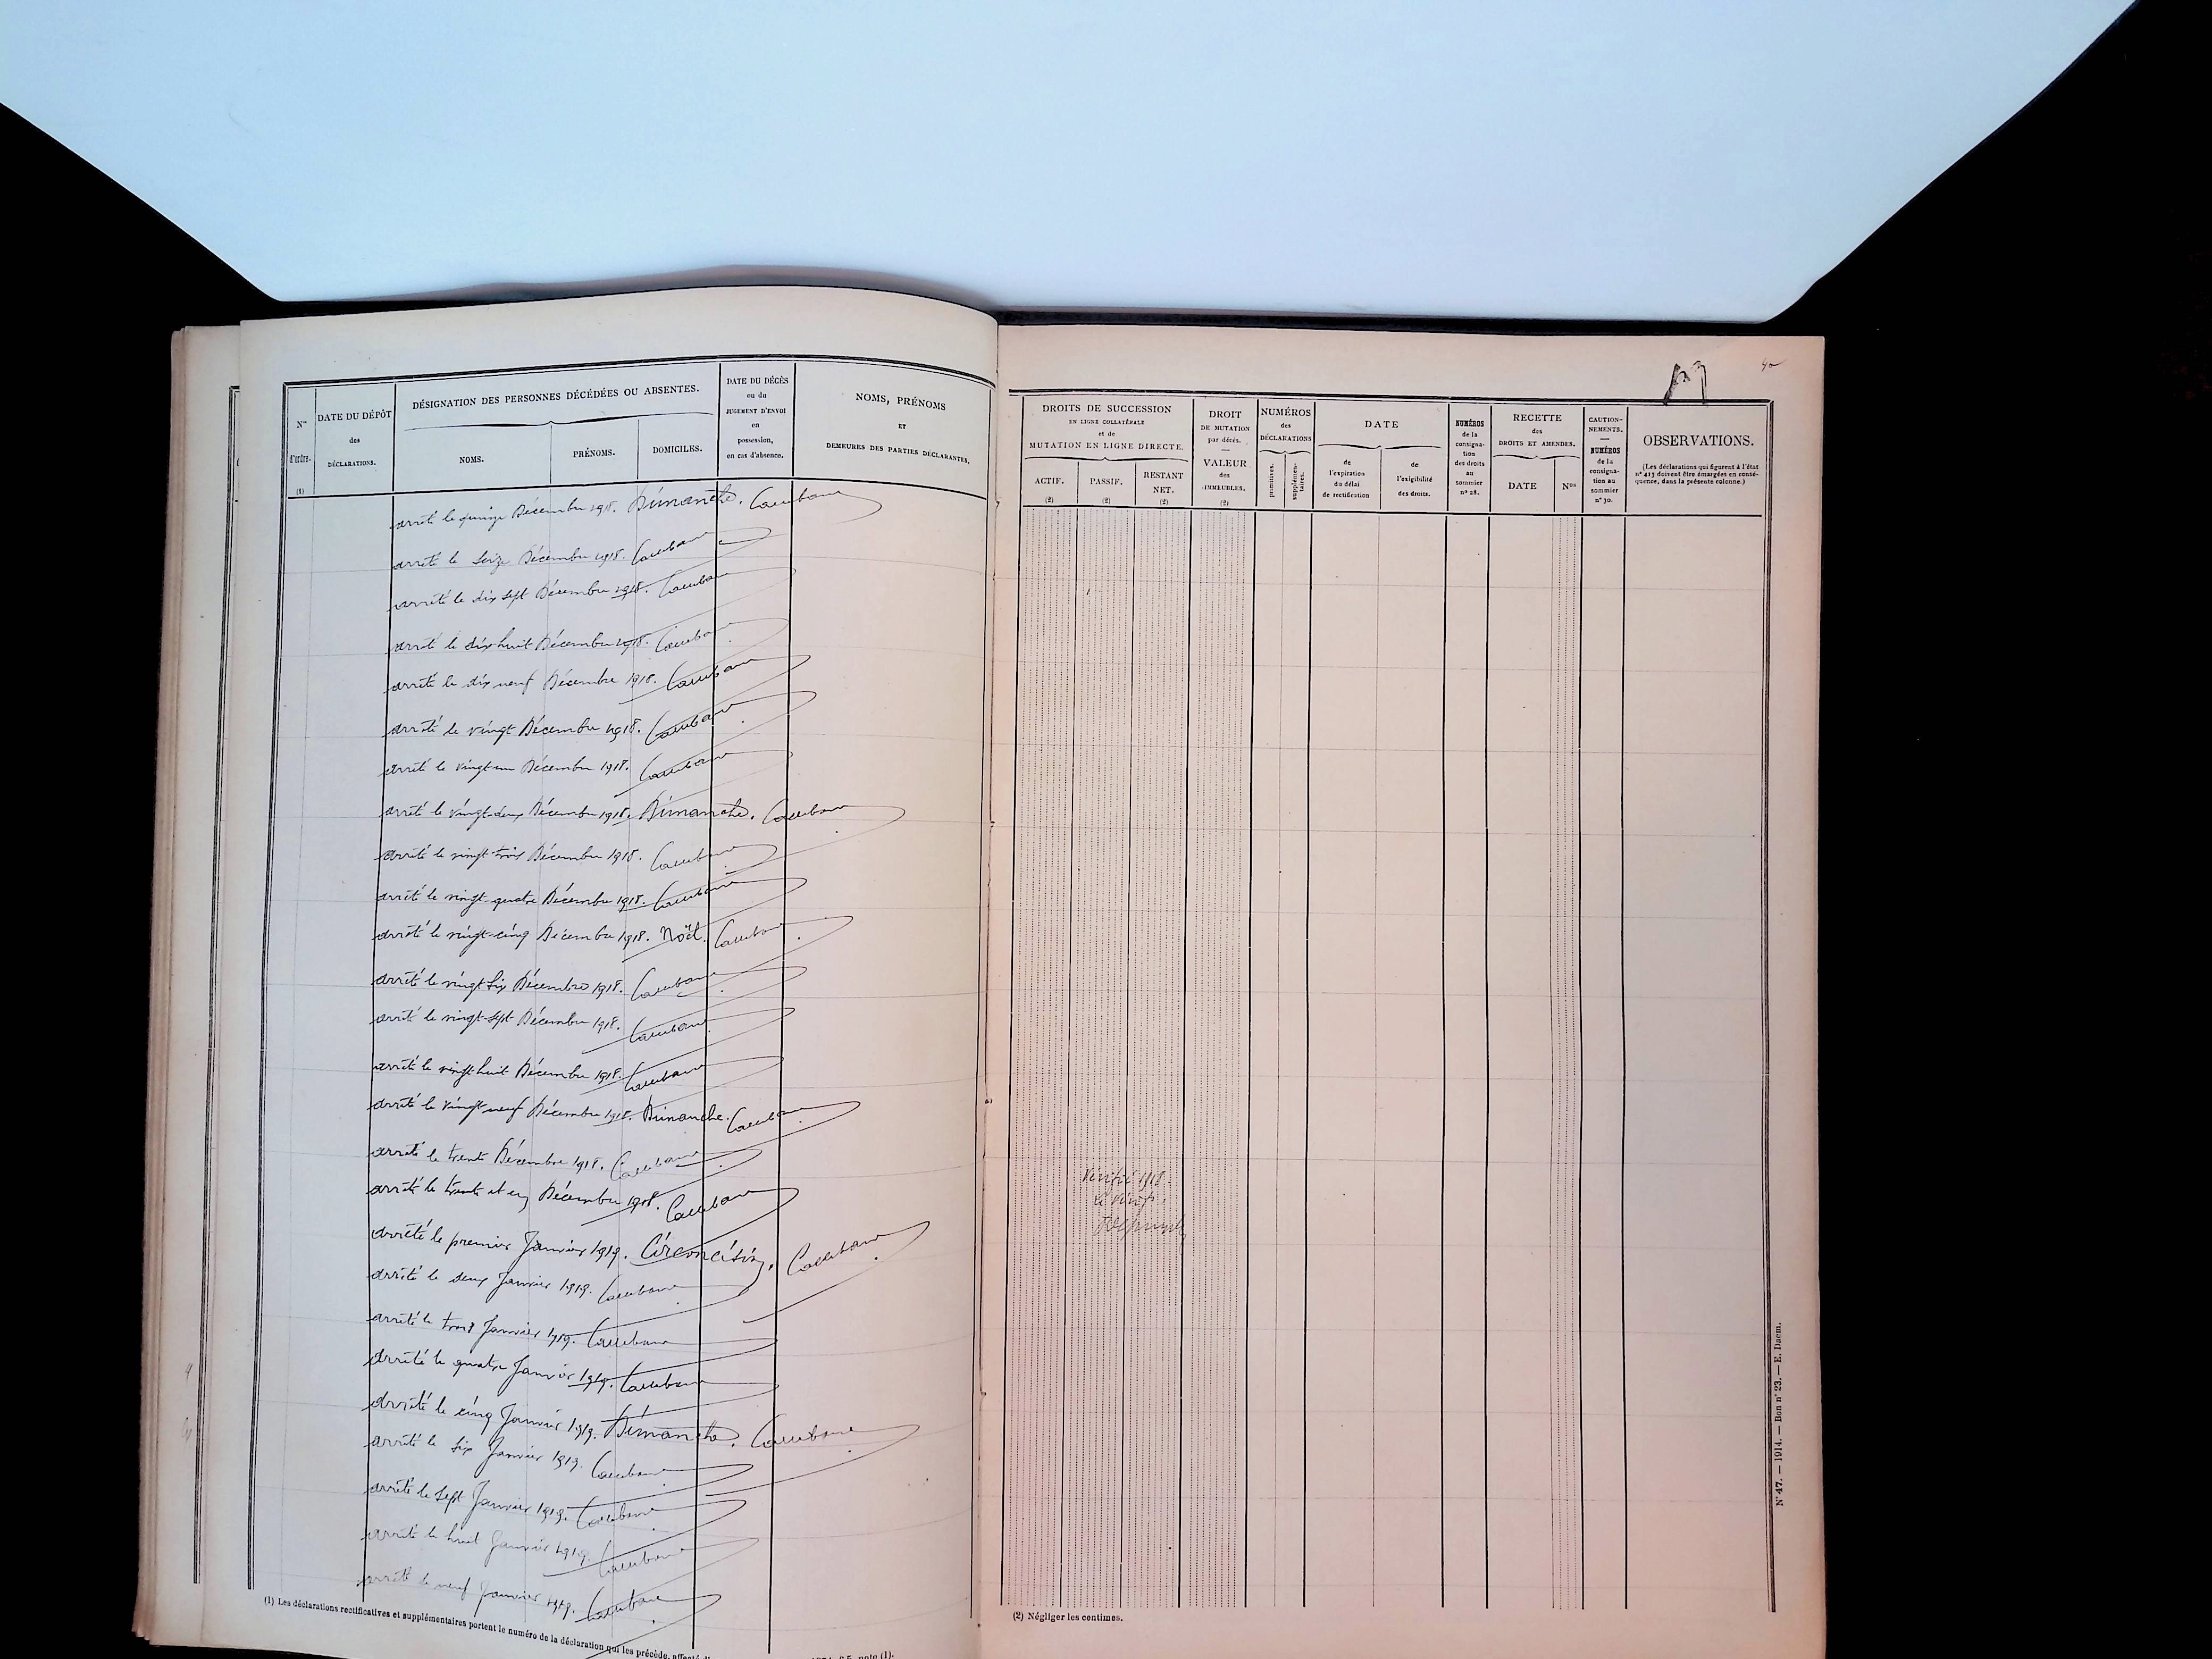 Nos d'ordre. (1)
DATE DU DÉPÔT des DÉCLARATIONS.
DÉSIGNATION DES PERSONNES DÉCÉDÉES OU ABSENTES.
NOMS.
PRÉNOMS.
DOMICILES.
DATE DU DÉCÈS ou du JUGEMENT D'ENVOI en possession, en cas d'absence.
NOMS, PRÉNOMS ET DEMEURES DES PARTIES DÉCLARANTES.
arrêté le quinze Décembre 1918. Dimanche.
arrêté le seize Décembre 1918.
arrêté le dix sept Décembre 1918.
arrêté le dix huit Décembre 1918.
arrêté le dix neuf Décembre 1918.
arrêté le vingt Décembre 1918.
arrêté le vingt un Décembre 1918.
arrêté le vingt-deux Décembre 1918. Dimanche.
arrêté le vingt trois Décembre 1918.
arrêté le vingt-quatre Décembre 1918.
arrêté le vingt-cinq Décembre 1918. Noël.
arrêté le vingt six Décembre 1918.
arrêté le vingt-sept Décembre 1918.
arrêté le vingt huit Décembre 1918.
arrêté le vingt neuf Décembre 1918. Dimanche.
arrêté le trente Décembre 1918.
arrêté le trente et un Décembre 1918.
arrêté le premier Janvier 1919. Circoncision.
arrêté le deux Janvier 1919.
arrêté le trois Janvier 1919.
arrêté le quatre Janvier 1919.
arrêté le cinq Janvier 1919. Dimanche.
arrêté le six Janvier 1919.
arrêté le sept Janvier 1919.
arrêté le huit Janvier 1919.
arrêté le neuf Janvier 1919.
(1) Les déclarations rectificatives et supplémentaires portent le numéro de la déclaration qui les précède, note (1).
40
DROITS DE SUCCESSION EN LIGNE COLLATÉRALE et de MUTATION EN LIGNE DIRECTE.
ACTIF. (2)
PASSIF. (2)
RESTANT NET. (2)
DROIT DE MUTATION par décès. — VALEUR des IMMEUBLES. (2)
NUMÉROS des DÉCLARATIONS
primitives.
supplémentaires.
DATE
de l'expiration du délai de rectification
de l'exigibilité des droits.
NUMÉROS de la consignation des droits au sommier n° 28.
RECETTE des DROITS ET AMENDES.
DATE
Nos
CAUTIONNEMENTS. — NUMÉROS de la consignation au sommier n° 30.
OBSERVATIONS.
(Les déclarations qui figurent à l'état n° 413 doivent être émargées en conséquence, dans la présente colonne.)
Vérifié 1918.
(2) Négliger les centimes.
N° 47. — 1914. — Bon n° 23. — E. Daem.